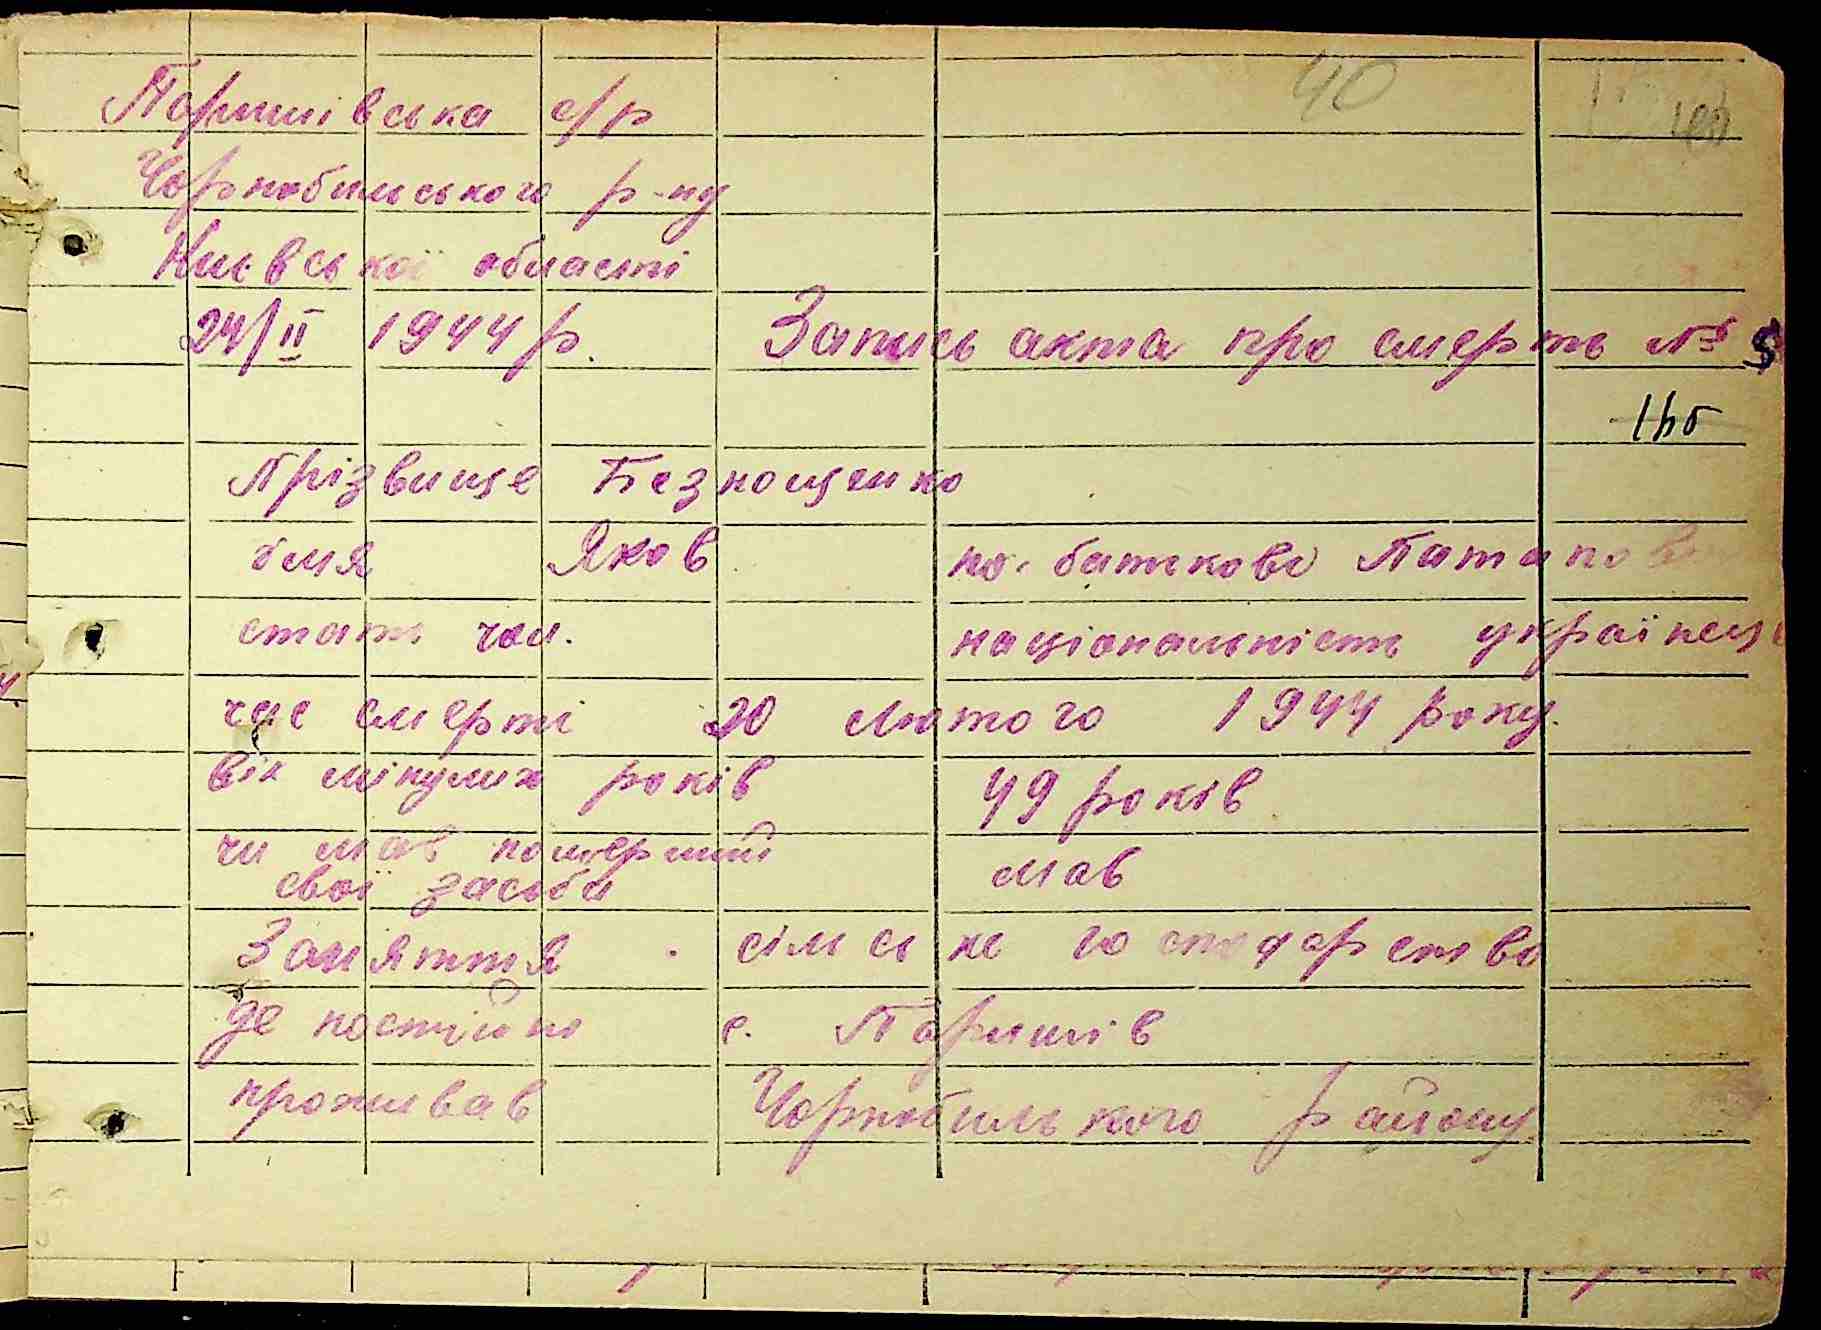 40
40
Паришівська с/р
Чорнобильського р-ну
Київської області
24/II 1944 р. Запись акта про смерть № 5
Прізвище Безнощенко
імя Яков по-батькові Патапов
стать чол. національність українец
час смерті 20 лютого 1944 року.
вік минулих років 49 років
чи мав померший мав
свої засоба
Заняття сільске господарство
де постійно с. Паришів
проживав Чорнобильського району